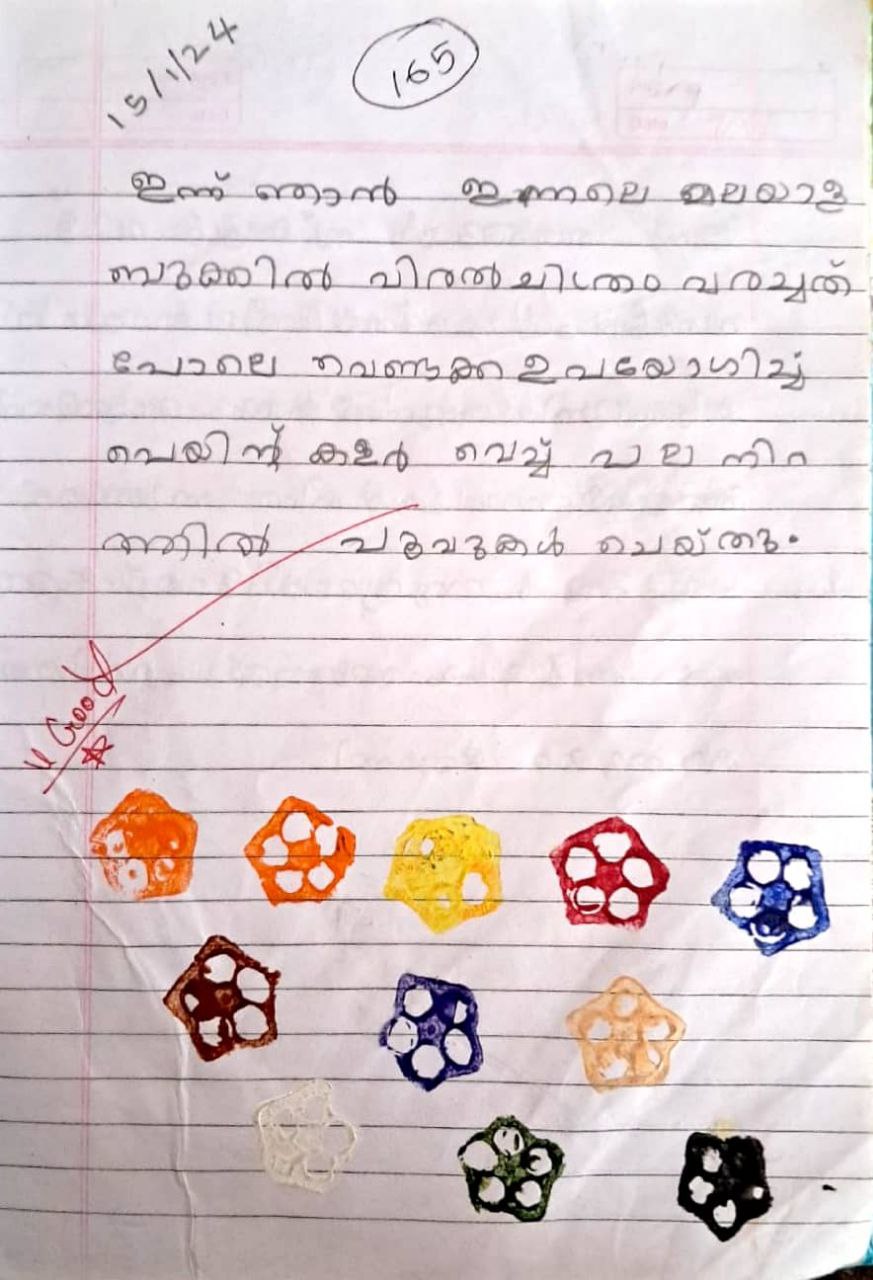 15/1/24
165
ഇന്ന് ഞാൻ ഇന്നലെ മലയാള
ബുക്കിൽ വിരൽ ചിത്രം വരച്ചത്
പോലെ വെണ്ടക്ക ഉപയോഗിച്ച്
പെയിന്റ് കളർ വെച്ച് പല നിറ
ത്തിൽ പൂവുകൾ ചെയ്തു.
Good